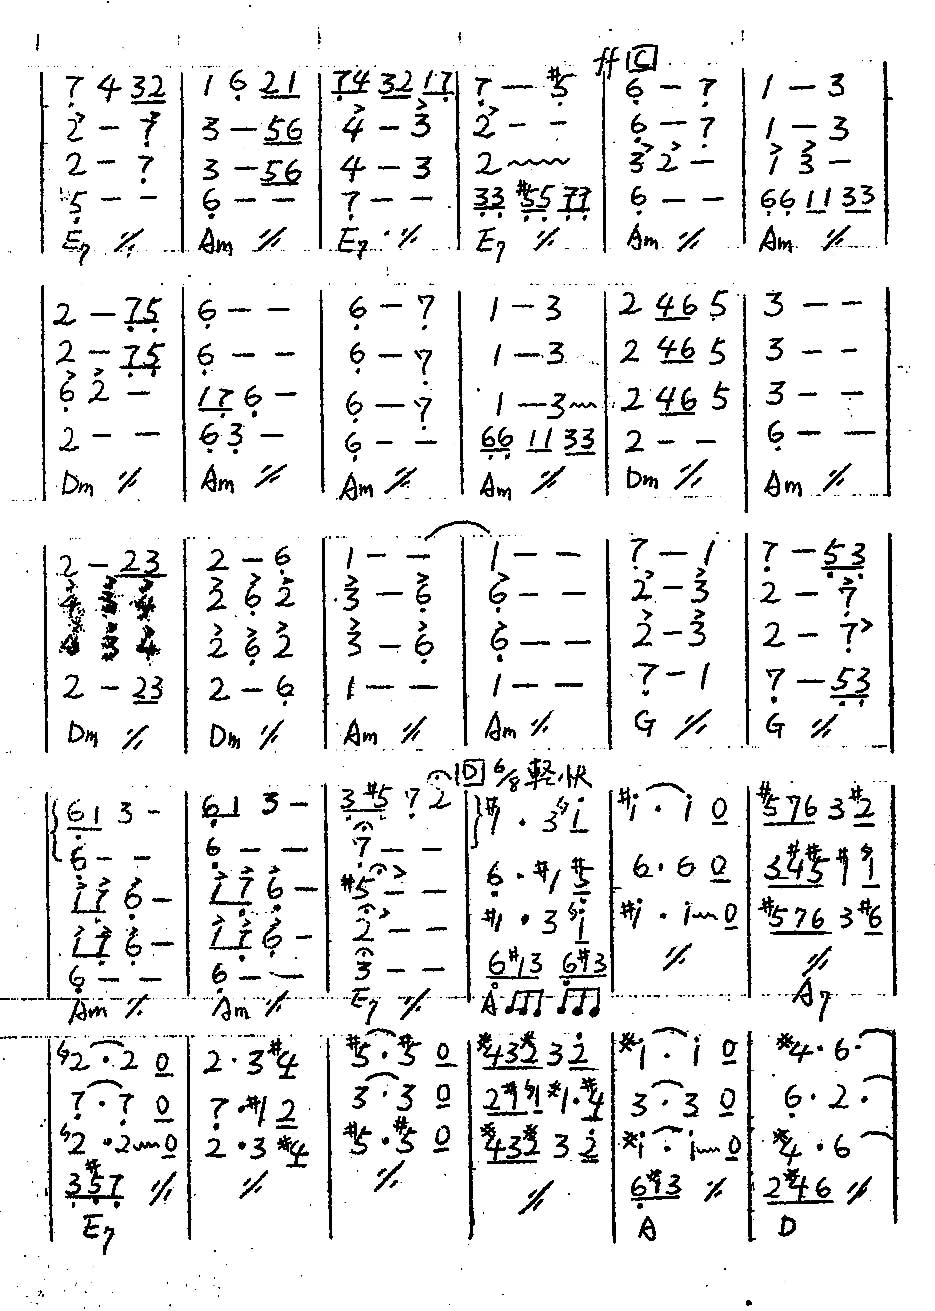 ff C
7 4 32 | 1 6 21 | 74 32 17 | 7 — #5 | 6 — 7 | 1 — 3
2 — 7 | 3 — 56 | 4 — 3 | 2 — — | 6 — 7 | 1 — 3
2 — 7 | 3 — 56 | 4 — 3 | 2 ~~~~ | 3 2 — | 1 3 —
5 — — | 6 — — | 7 — — | 33 #55 77 | 6 — — | 66 11 33
E7 % | Am % | E7 % | E7 % | Am % | Am %
2 — 75 | 6 — — | 6 — 7 | 1 — 3 | 2 46 5 | 3 — —
2 — 75 | 6 — — | 6 — 7 | 1 — 3 | 2 46 5 | 3 — —
6 2 — | 17 6 — | 6 — 7 | 1 — 3~~ | 2 46 5 | 3 — —
2 — — | 63 — | 6 — — | 66 11 33 | 2 — — | 6 — —
Dm % | Am % | Am % | Am % | Dm % | Am %
2 — 23 | 2 — 6 | 1 — — | 1 — — | 7 — 1 | 7 — 53
2 6 2 | 3 — 6 | 6 — — | 2 — 3 | 2 — 7
4 3 4 | 2 6 2 | 3 — 6 | 6 — — | 2 — 3 | 2 — 7
2 — 23 | 2 — 6 | 1 — — | 1 — — | 7 — 1 | 7 — 53
Dm % | Dm % | Am % | Am % | G % | G %
D 6/8 軽快
61 3 — | 61 3 — | 3#5 7 2 | #1 · 3 ♮1 | #1 · 1 0 | #576 3 #2
6 — — | 6 — — | 7 — — | 6 · #1 #5 | 6 · 6 0 | 3#4#5 #1 ♮1
17 6 — | 17 6 — | #5 — — | #1 · 3 ♮1 | #1 · 1~~0 | #576 3 #6
17 6 — | 17 6 — | 2 — — | 6#13 6#13 | % | %
6 — — | 6 — — | 3 — —
Am % | Am % | E7 % | A ♫♪ ♫♪ | A7
♮2 · 2 0 | 2 · 3 #4 | #5 · #5 0 | #43#2 3 2 | #1 · 1 0 | #4 · 6 ·
7 · 7 0 | 7 · #1 2 | 3 · 3 0 | 2#1♮1 #1 · #4 | 3 · 3 0 | 6 · 2 ·
♮2 · 2~~0 | 2 · 3 #4 | #5 · #5 0 | #43#2 3 2 | #1 · 1~~0 | #4 · 6
3#57 % | % | % | % | 6#13 % | 2#46 %
E7 | A | D